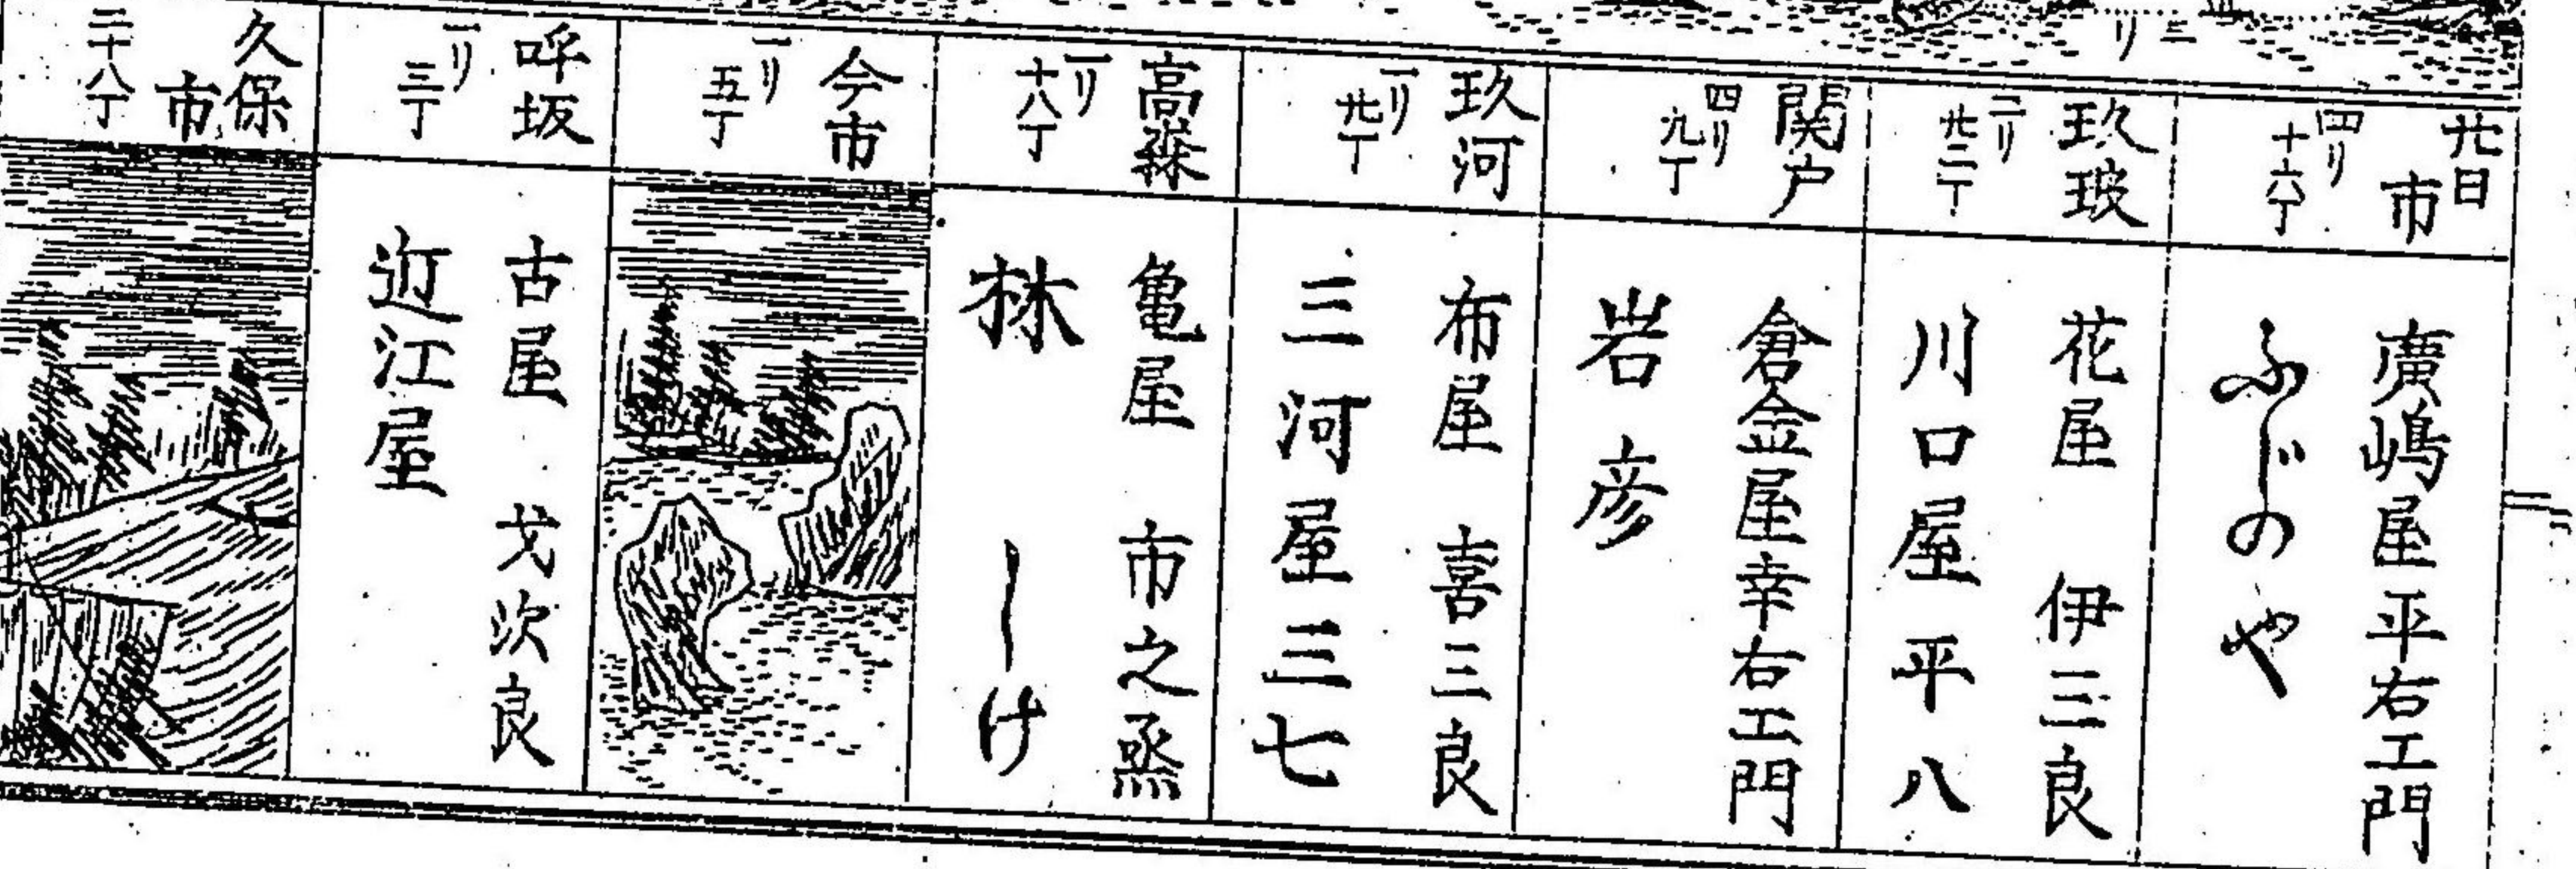 三リ
廿日市
四リ
十六丁
廣嶋屋平右エ門
ふじのや
玖玻
二リ
廿二丁
花屋 伊三良
川口屋平八
関户
四リ
九丁
倉金屋幸右エ門
岩彦
玖河
一リ
廿丁
布屋 喜三良
三河屋三七
高森
一リ
十八丁
亀屋 市之烝
林 しけ
今市
一リ
五丁
呼坂
一リ
三丁
古屋 弋次良
近江屋
久保市
二十八丁